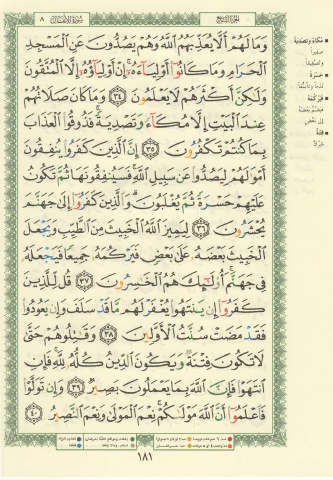 سورة الأنفال ٨
الجزء التاسع
وَمَا لَهُمْ أَلَّا يُعَذِّبَهُمُ ٱللَّهُ وَهُمْ يَصُدُّونَ عَنِ ٱلْمَسْجِدِ
ٱلْحَرَامِ وَمَا كَانُوٓا۟ أَوْلِيَآءَهُۥٓ إِنْ أَوْلِيَآؤُهُۥٓ إِلَّا ٱلْمُتَّقُونَ
وَلَٰكِنَّ أَكْثَرَهُمْ لَا يَعْلَمُونَ ٣٤ وَمَا كَانَ صَلَاتُهُمْ
عِندَ ٱلْبَيْتِ إِلَّا مُكَآءً وَتَصْدِيَةً فَذُوقُوا۟ ٱلْعَذَابَ
بِمَا كُنتُمْ تَكْفُرُونَ ٣٥ إِنَّ ٱلَّذِينَ كَفَرُوا۟ يُنفِقُونَ
أَمْوَٰلَهُمْ لِيَصُدُّوا۟ عَن سَبِيلِ ٱللَّهِ فَسَيُنفِقُونَهَا ثُمَّ تَكُونُ
عَلَيْهِمْ حَسْرَةً ثُمَّ يُغْلَبُونَ وَٱلَّذِينَ كَفَرُوٓا۟ إِلَىٰ جَهَنَّمَ
يُحْشَرُونَ ٣٦ لِيَمِيزَ ٱللَّهُ ٱلْخَبِيثَ مِنَ ٱلطَّيِّبِ وَيَجْعَلَ
ٱلْخَبِيثَ بَعْضَهُۥ عَلَىٰ بَعْضٍ فَيَرْكُمَهُۥ جَمِيعًا فَيَجْعَلَهُۥ
فِى جَهَنَّمَ أُو۟لَٰٓئِكَ هُمُ ٱلْخَٰسِرُونَ ٣٧ قُل لِّلَّذِينَ
كَفَرُوٓا۟ إِن يَنتَهُوا۟ يُغْفَرْ لَهُم مَّا قَدْ سَلَفَ وَإِن يَعُودُوا۟
فَقَدْ مَضَتْ سُنَّتُ ٱلْأَوَّلِينَ ٣٨ وَقَٰتِلُوهُمْ حَتَّىٰ
لَا تَكُونَ فِتْنَةٌ وَيَكُونَ ٱلدِّينُ كُلُّهُۥ لِلَّهِ فَإِنِ
ٱنتَهَوْا۟ فَإِنَّ ٱللَّهَ بِمَا يَعْمَلُونَ بَصِيرٌ ٣٩ وَإِن تَوَلَّوْا۟
فَٱعْلَمُوٓا۟ أَنَّ ٱللَّهَ مَوْلَىٰكُمْ نِعْمَ ٱلْمَوْلَىٰ وَنِعْمَ ٱلنَّصِيرُ ٤٠
١٨١
مُكَاءً وتَصْدِيَةً
حَسْرَةً